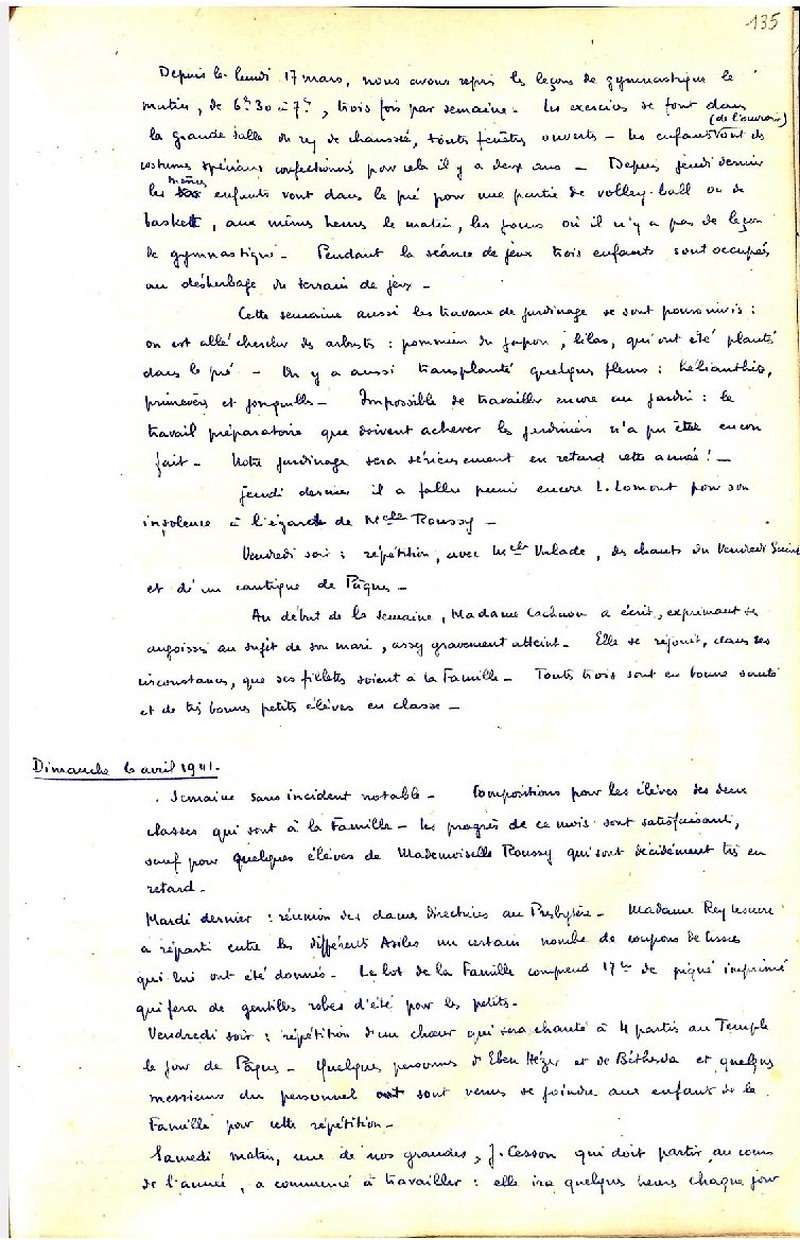 135
Depuis le lundi 17 mars, nous avons repris les leçons de gymnastique le
matin, de 6h30 à 7h, trois fois par semaine - Les exercices se font dans
(de l'ouvroir)
la grande salle du rez de chaussée, toutes fenêtres ouvertes - Les enfants ont des
costumes spéciaux confectionnés pour cela il y a deux ans - Depuis jeudi dernier
les mêmes enfants vont dans le pré pour une partie de volley-ball ou de
baskett, aux mêmes heures le matin, les jours où il n'y a pas de leçon
de gymnastique - Pendant la séance de jeux trois enfants sont occupés
au désherbage du terrain de jeu -
Cette semaine aussi les travaux de jardinage se sont poursuivis :
on est allé chercher des arbustes : pommier du japon, lilas, qui ont été plantés
dans le pré - On y a aussi transplanté quelques fleurs : hélianthes,
primevères et jonquilles - Impossible de travailler encore au jardin : le
travail préparatoire que doivent achever les jardiniers n'a pu être encore
fait - Notre jardinage sera sérieusement en retard cette année ! -
Jeudi dernier il a fallu punir encore L. Lomont pour son
insolence à l'égard de Melle Roussy -
Vendredi soir : répétition, avec Melle Valade, des chants du Vendredi Saint
et d'un cantique de Pâques -
Au début de la semaine, Madame a écrit, exprimant ses
angoisses au sujet de son mari, assez gravement atteint - Elle se réjouit, dans ses
circonstances, que ses fillettes soient à la Famille - Toutes trois sont en bonne santé
et de très bonnes petites élèves en classe -
Dimanche 6 avril 1941.
Semaine sans incident notable - Compositions pour les élèves des deux
classes qui sont à la Famille - Les progrès de ce mois sont satisfaisants,
sauf pour quelques élèves de Mademoiselle Roussy qui sont décidément très en
retard -
Mardi dernier : réunion des dames directrices au Presbytère - Madame Rey Lescure
a réparti entre les différents Asiles un certain nombre de coupons de tissus
qui lui ont été donnés - Le lot de la Famille comprend 17m de piqué imprimé
qui fera de gentilles robes d'été pour les petits -
Vendredi soir : répétition d'un chœur qui sera chanté à 4 parties au Temple
le jour de Pâques - Quelques personnes d'Eben Hézer et de Béthesda et quelques
messieurs du personnel sont venus se joindre aux enfants de la
Famille pour cette répétition -
Samedi matin, une de nos grandes, J. Cesson qui doit partir au cours
de l'année, a commencé à travailler : elle ira quelques heures chaque jour